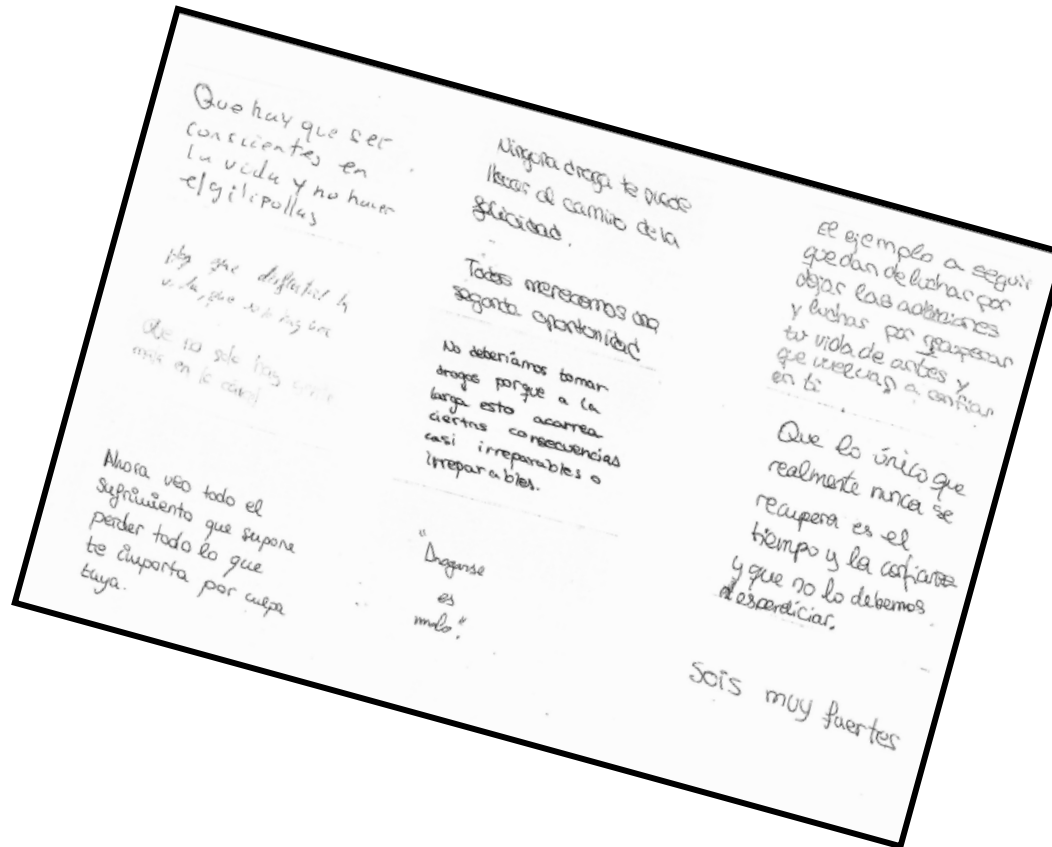 Que hay que ser
conscientes en
la vida y no hacer
el gilipollas
Hay que disfrutar la
vida, que solo hay una
Que no solo hay
más en la
Ahora veo todo el
sufrimiento que supone
perder todo lo que
te importa por culpa
tuya.
Ninguna droga te puede
llevar al camino de la
felicidad.
Todos merecemos una
segunda oportunidad
No deberíamos tomar
drogas porque a la
larga esto acarrea
ciertas consecuencias
casi irreparables o
irreparables.
"Drogarse
es
malo."
El ejemplo a seguir
que dan de luchar por
dejar las adicciones
y luchar por recuperar
tu vida de antes y
que vuelvan a confiar
en ti.
Que lo único que
realmente nunca se
recupera es el
tiempo y la confianza
y que no lo debemos
desperdiciar.
Sois muy fuertes